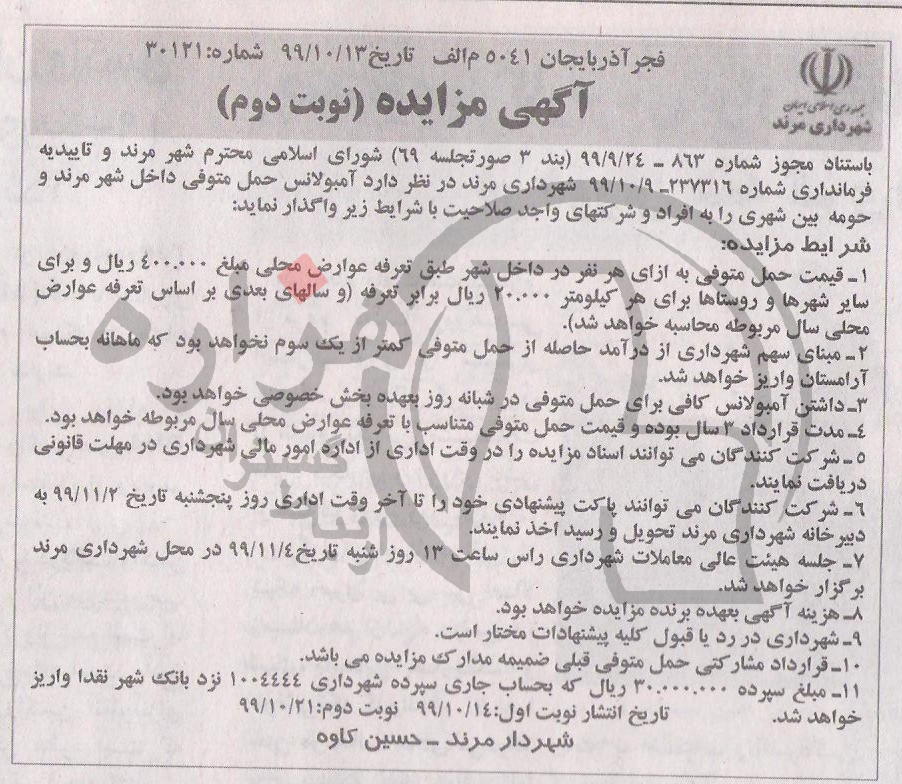 فجر آذربایجان ۵۰۴۱ م‌الف تاریخ ۹۹/۱۰/۱۳ شماره: ۳۰۱۲۱
آگهی مزایده (نوبت دوم)
جمهوری اسلامی ایران
شهرداری مرند
باستناد مجوز شماره ۸۶۳ ـ ۹۹/۹/۲۴ (بند ۳ صورتجلسه ۶۹) شورای اسلامی محترم شهر مرند و تاییدیه
فرمانداری شماره ۲۳۷۳۱۶ـ ۹۹/۱۰/۹ شهرداری مرند در نظر دارد آمبولانس حمل متوفی داخل شهر مرند و
حومه بین شهری را به افراد و شرکتهای واجد صلاحیت با شرایط زیر واگذار نماید:
شرایط مزایده:
۱ـ قیمت حمل متوفی به ازای هر نفر در داخل شهر طبق تعرفه عوارض محلی مبلغ ۴۰۰.۰۰۰ ریال و برای
سایر شهرها و روستاها برای هر کیلومتر ۲۰.۰۰۰ ریال برابر تعرفه (و سالهای بعدی بر اساس تعرفه عوارض
محلی سال مربوطه محاسبه خواهد شد).
۲ـ مبنای سهم شهرداری از درآمد حاصله از حمل متوفی کمتر از یک سوم نخواهد بود که ماهانه بحساب
آرامستان واریز خواهد شد.
۳ـ داشتن آمبولانس کافی برای حمل متوفی در شبانه روز بعهده بخش خصوصی خواهد بود.
۴ـ مدت قرارداد ۳ سال بوده و قیمت حمل متوفی متناسب با تعرفه عوارض محلی سال مربوطه خواهد بود.
۵ـ شرکت کنندگان می توانند اسناد مزایده را در وقت اداری از اداره امور مالی شهرداری در مهلت قانونی
دریافت نمایند.
۶ـ شرکت کنندگان می توانند پاکت پیشنهادی خود را تا آخر وقت اداری روز پنجشنبه تاریخ ۹۹/۱۱/۲ به
دبیرخانه شهرداری مرند تحویل و رسید اخذ نمایند.
۷ـ جلسه هیئت عالی معاملات شهرداری راس ساعت ۱۳ روز شنبه تاریخ ۹۹/۱۱/۴ در محل شهرداری مرند
برگزار خواهد شد.
۸ـ هزینه آگهی بعهده برنده مزایده خواهد بود.
۹ـ شهرداری در رد یا قبول کلیه پیشنهادات مختار است.
۱۰ـ قرارداد مشارکتی حمل متوفی قبلی ضمیمه مدارک مزایده می باشد.
۱۱ـ مبلغ سپرده ۳۰.۰۰۰.۰۰۰ ریال که بحساب جاری سپرده شهرداری ۱۰۰۴۴۴۴ نزد بانک شهر نقدا واریز
خواهد شد. تاریخ انتشار نوبت اول: ۹۹/۱۰/۱۴ نوبت دوم: ۹۹/۱۰/۲۱
شهردار مرند ـ حسین کاوه
هزاره